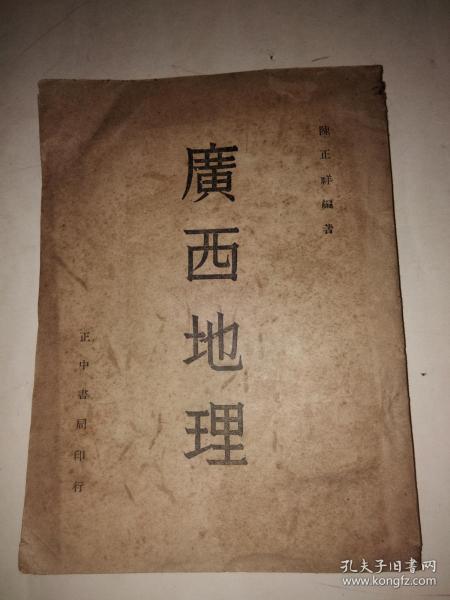 陳正祥編著
廣西地理
正中書局印行
孔夫子旧书网
www.kongfz.com